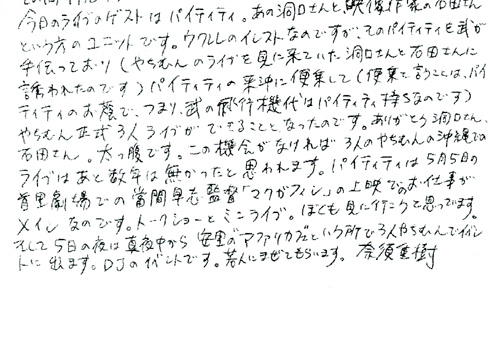 今日のライブのゲストはパイティティ。あの洞口さんと映像作家の石田さん
という方のユニットです。ウクレレのインストなのですが、そのパイティティを武が
手伝っており(やちむんのライブを見に来ていた洞口さんと石田さんに
誘われたのです)パイティティの来沖に便乗して(便乗と言うことは、パイ
ティティのお蔭で、つまり、武の飛行機代はパイティティ持ちなのです)
やちむん正式3人ライブができることと、なったのです。ありがとう洞口さん、
石田さん。太っ腹です。この機会がなければ3人のやちむんの沖縄での
ライブはあと数年は無かったと思われます。パイティティは5月5日の
首里劇場での當間早志監督「マクガフィン」の上映でのお仕事が
メインなのです。トークショーとミニライブ。ぼくも見に行こうと思ってます。
そして5日の夜は真夜中から安里の"アファリカフェという所で3人やちむんでイベン
トに出ます。DJのイベントです。若人にまぜてもらいます。 奈須重樹